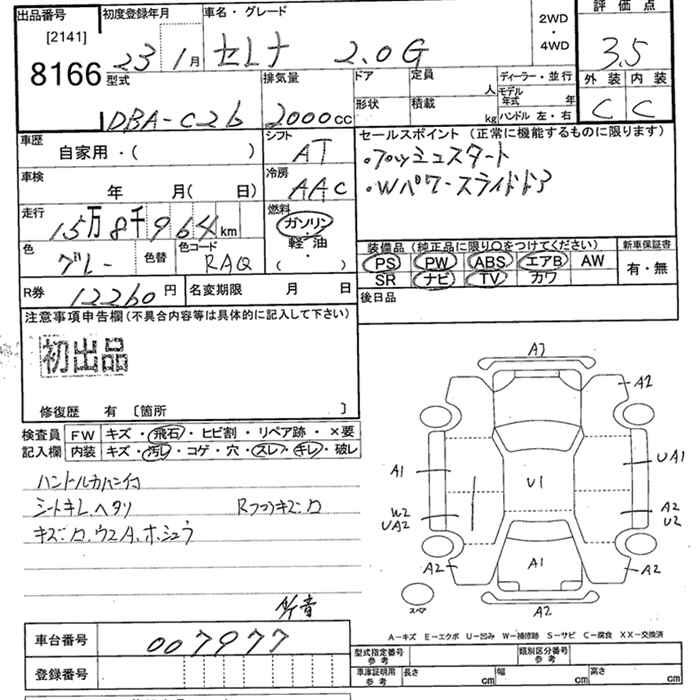 出品番号 初度登録年月 車名・グレード 2WD・4WD 評価点
[2141]
8166 23 1月 セレナ 2.0G 3.5
型式 排気量 ドア 定員 人 ディーラー・並行 外装 内装
DBA-C26 2000cc 形状 積載 kg モデル年式 年 ハンドル 左・右 C C
車歴 シフト セールスポイント (正常に機能するものに限ります)
自家用・( ) AT ・プッシュスタート
車検 冷房 ・Wパワースライドドア
年 月( 日) AAC
走行 燃料
15万8千964km ガソリン
軽油
色 色替 色コード 装備品 (純正品に限り○をつけてください) 新車保証書
グレー RAQ ( ) PS PW ABS エアB AW 有・無
SR ナビ TV カワ
R券 12260円 名変期限 月 日 後日品
注意事項申告欄(不具合内容等は具体的に記入して下さい)
初出品
修復歴 有 〔箇所 〕
検査員 FW キズ・飛石・ヒビ割・リペア跡・×要
記入欄 内装 キズ・汚レ・コゲ・穴・スレ・キレ・破レ
シートキレ、ヘタリ
A3
A2
A1 U1 UA1
W2 A2
UA2 U2
A2 A1 A2
スペア A2
A-キズ E-エクボ U-凹み W-補修跡 S-サビ C-腐食 XX-交換済
車台番号 007977
型式指定番号 参考 類別区分番号 参考
登録番号 車庫証明用 参考 長さ cm 幅 cm 高さ cm